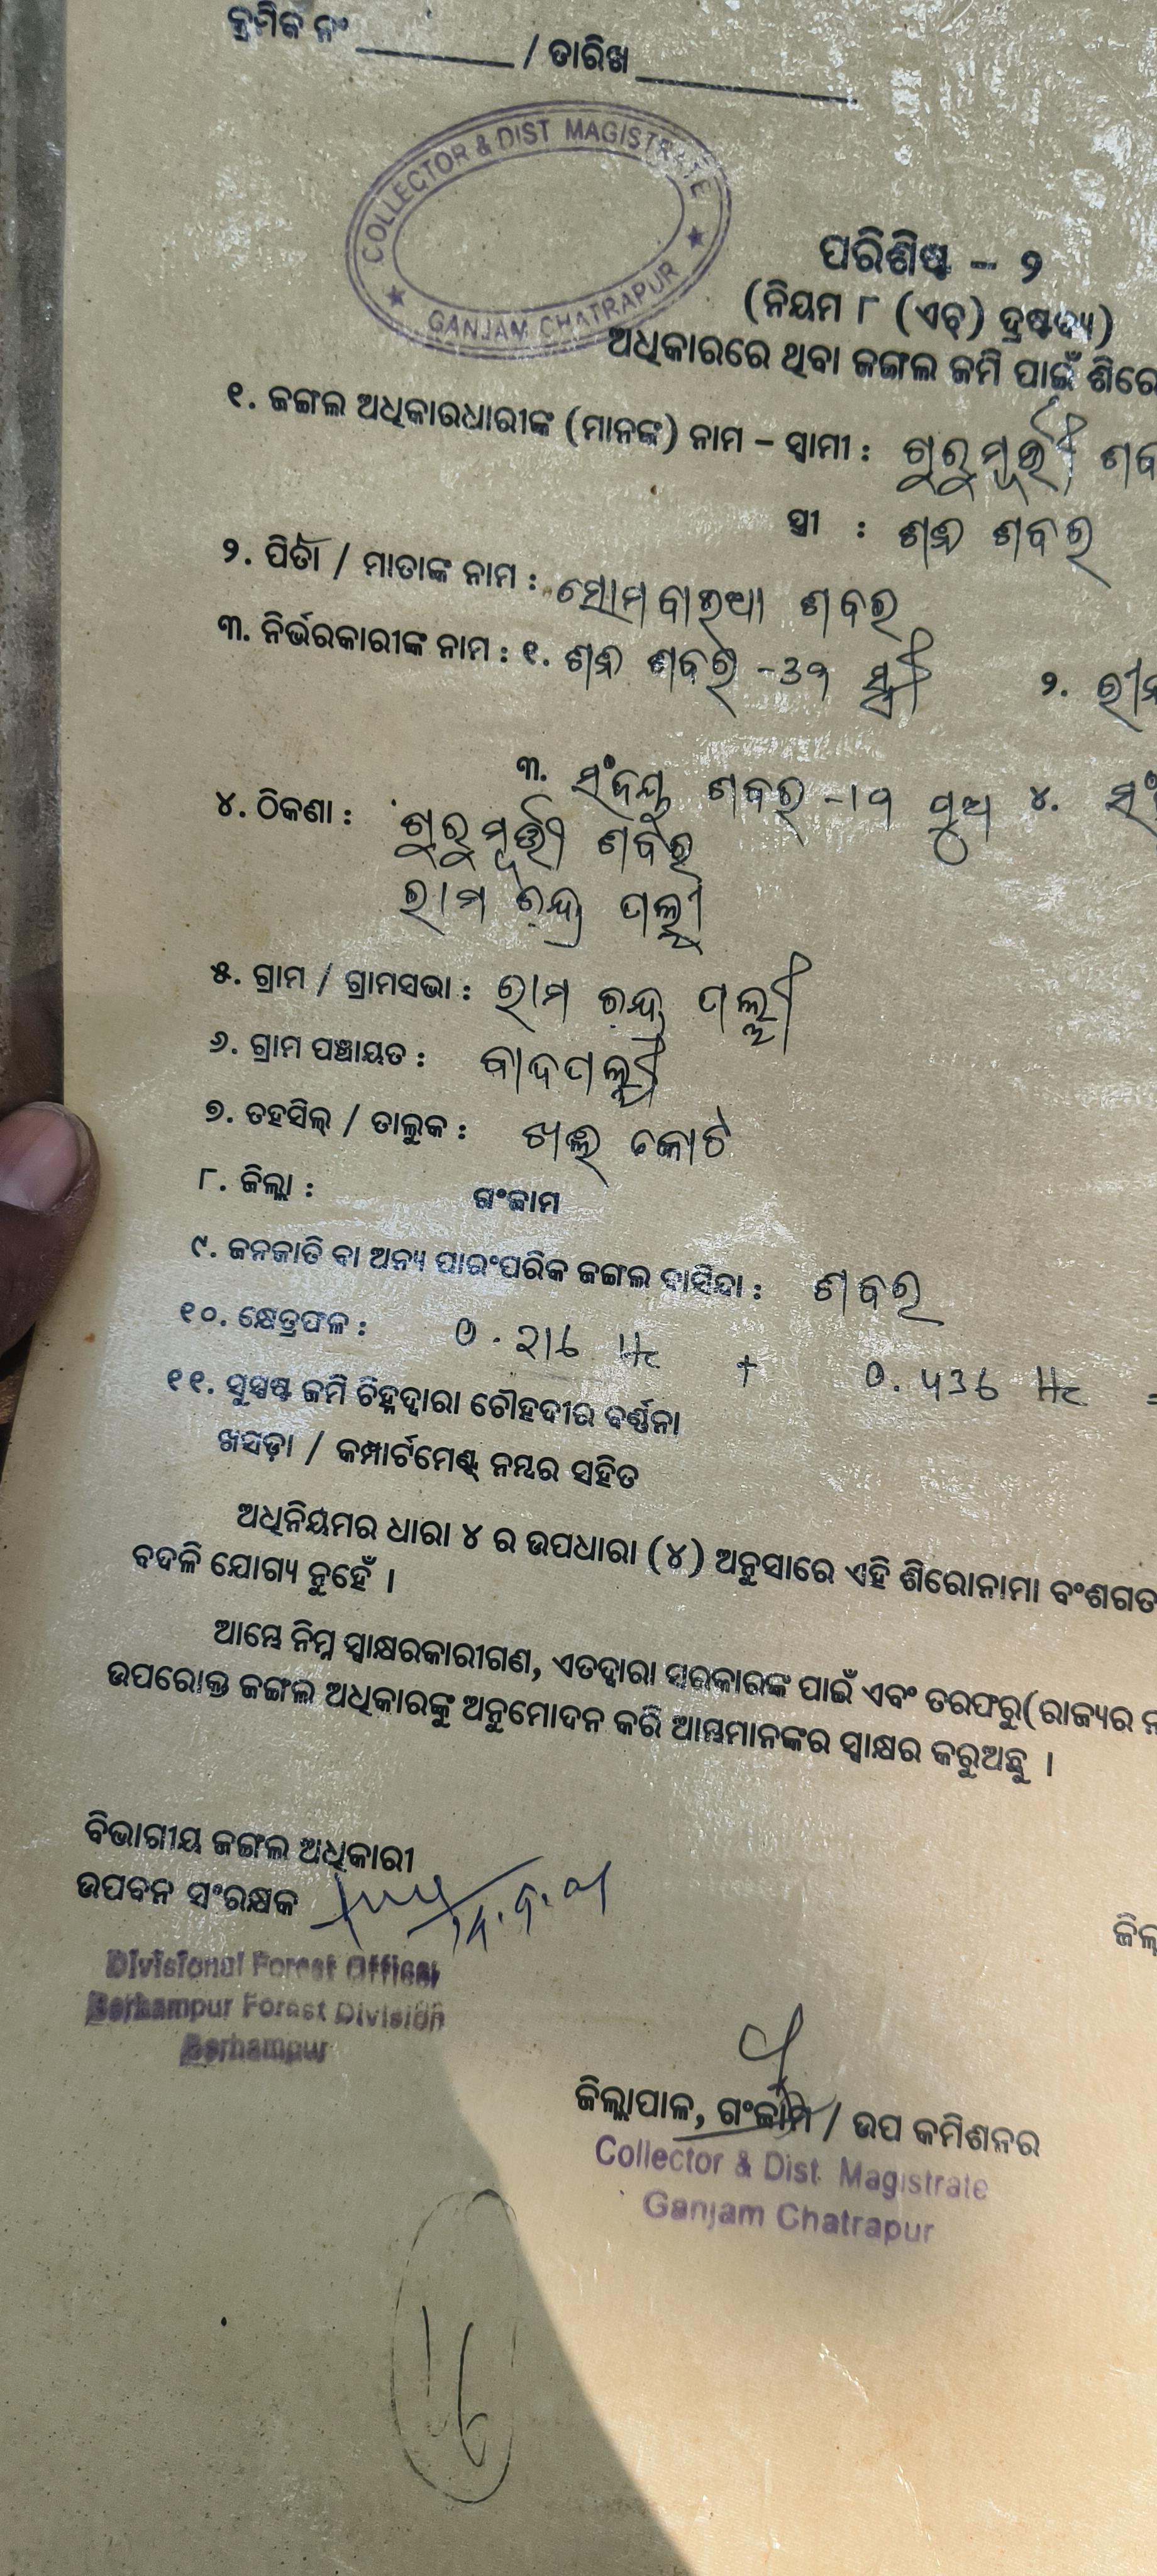 କ୍ରମିକ ନଂ ________ / ତାରିଖ ________
COLLECTOR & DIST MAGISTRATE
GANJAM CHATRAPUR
ପରିଶିଷ୍ଟ - ୨
(ନିୟମ ୮ (ଏଚ୍) ଦ୍ରଷ୍ଟବ୍ୟ)
ଅଧିକାରରେ ଥିବା ଜଙ୍ଗଲ ଜମି ପାଇଁ
୧. ଜଙ୍ଗଲ ଅଧିକାରଧାରୀଙ୍କ (ମାନଙ୍କ) ନାମ - ସ୍ୱାମୀ : ଗୁରୁମୂର୍ତ୍ତୀ
ସ୍ତ୍ରୀ : ଶବର
୨. ପିତା / ମାତାଙ୍କ ନାମ : ଶବର
୩. ନିର୍ଭରକାରୀଙ୍କ ନାମ : ୧. ଶବର -୩୨ ସ୍ତ୍ରୀ ୨.
୩. ସଂଜୟ ଶବର -୧୨ ପୁଅ ୪.
୪. ଠିକଣା : ଗୁରୁମୂର୍ତ୍ତୀ ଶବର
ରାମ ଚନ୍ଦ୍ର ପଲ୍ଲୀ
୫. ଗ୍ରାମ / ଗ୍ରାମସଭା : ରାମ ଚନ୍ଦ୍ର ପଲ୍ଲୀ
୬. ଗ୍ରାମ ପଞ୍ଚାୟତ : ବାଦପଲ୍ଲୀ
୭. ତହସିଲ୍ / ତାଲୁକ : ଖଲ୍ଲ କୋଟ
୮. ଜିଲ୍ଲା : ଗଂଜାମ
୯. ଜନଜାତି ବା ଅନ୍ୟ ପାରଂପରିକ ଜଙ୍ଗଲ ବାସିନ୍ଦା : ଶବର
୧୦. କ୍ଷେତ୍ରଫଳ : 0.216 Hc + 0.436 Hc =
୧୧. ସୁସ୍ପଷ୍ଟ ଜମି ଚିହ୍ନଦ୍ୱାରା ଚୌହଦୀର ବର୍ଣ୍ଣନା
ଖସଡ଼ା / କମ୍ପାର୍ଟମେଣ୍ଟ୍ ନମ୍ବର ସହିତ
ଅଧିନିୟମର ଧାରା ୪ ର ଉପଧାରା (୪) ଅନୁସାରେ ଏହି ଶିରୋନାମା ବଂଶଗତ
ବଦଳି ଯୋଗ୍ୟ ନୁହେଁ ।
ଆମ୍ଭେ ନିମ୍ନ ସ୍ୱାକ୍ଷରକାରୀଗଣ, ଏତଦ୍ୱାରା ସରକାରଙ୍କ ପାଇଁ ଏବଂ ତରଫରୁ (ରାଜ୍ୟର
ଉପରୋକ୍ତ ଜଙ୍ଗଲ ଅଧିକାରଙ୍କୁ ଅନୁମୋଦନ କରି ଆମ୍ଭମାନଙ୍କର ସ୍ୱାକ୍ଷର କରୁଅଛୁ ।
ବିଭାଗୀୟ ଜଙ୍ଗଲ ଅଧିକାରୀ
ଉପବନ ସଂରକ୍ଷକ
Divisional Forest Officer
Berhampur Forest Division
Berhampur
ଜିଲ୍ଲାପାଳ, ଗଂଜାମ / ଉପ କମିଶନର
Collector & Dist. Magistrate
Ganjam Chatrapur